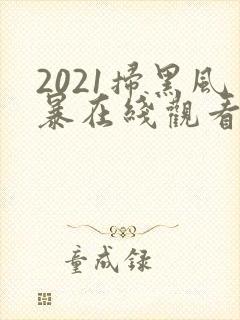 2021掃黑風
暴在綫觀看
童成録